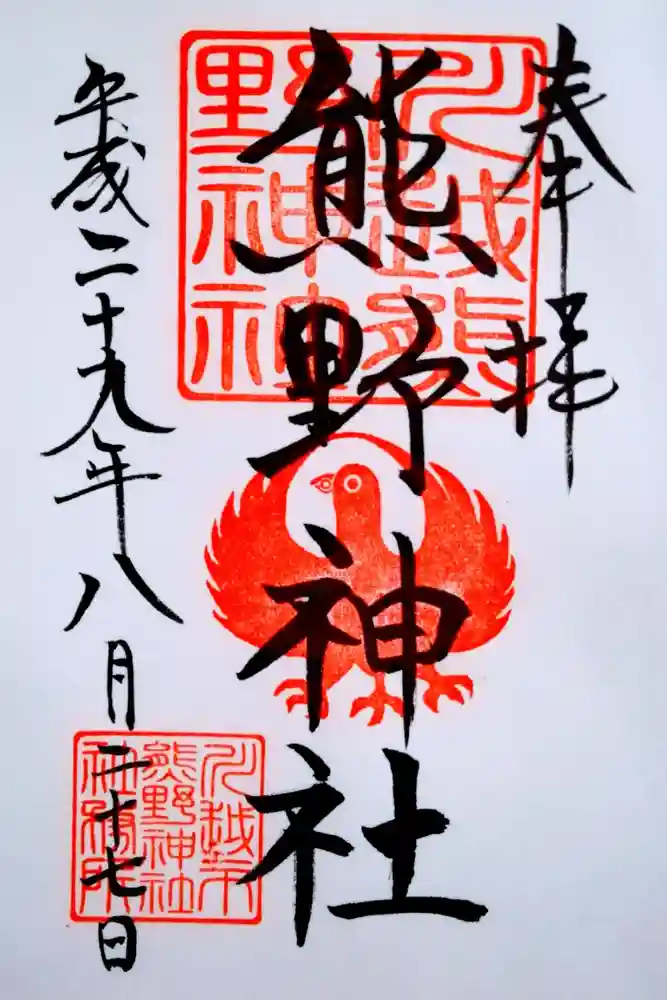 奉拝
熊野神社
平成二十九年八月二十七日
川越熊
野神社
川越市
熊野神社
社務所